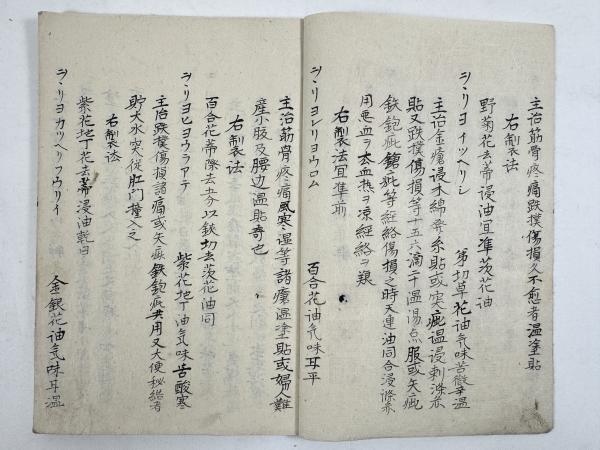 主治筋骨疼痛跌撲傷損久不愈者温塗貼
右製法
野菊花去蒂浸油宜準茨花油
ヲヽリヨイツヘリシ 弟切草花油気味苦微辛温
主治金瘡浸木綿

貼又跌撲傷損等十五六滴二十温湯点服或矢疵
鉄鉋疵鎗疵等経絡傷損之時天連油同合浸
用悪血ヲ去血熱ヲ凉経絡ヲ
右製法宜準前
ヲヽリヨレリヨウロム 百合花油気味耳平
主治筋骨疼痛風寒湿等諸瘡温塗貼或婦人難
産小股及腰边温貼奇也
右製法
百合花蒂際去上分以鋏切去茨花油同
ヲヽリヨヒヨウラアテ 紫花地丁油気味苦酸寒
主治跌撲傷損諸痛或矢疵鉄鉋疵共用又大便秘結者
貯大水突従肛門撞入之
右製法
紫花地丁花去蒂浸油乾曰
ヲヽリヨカツヘリフウリイ 金銀花油気味耳温